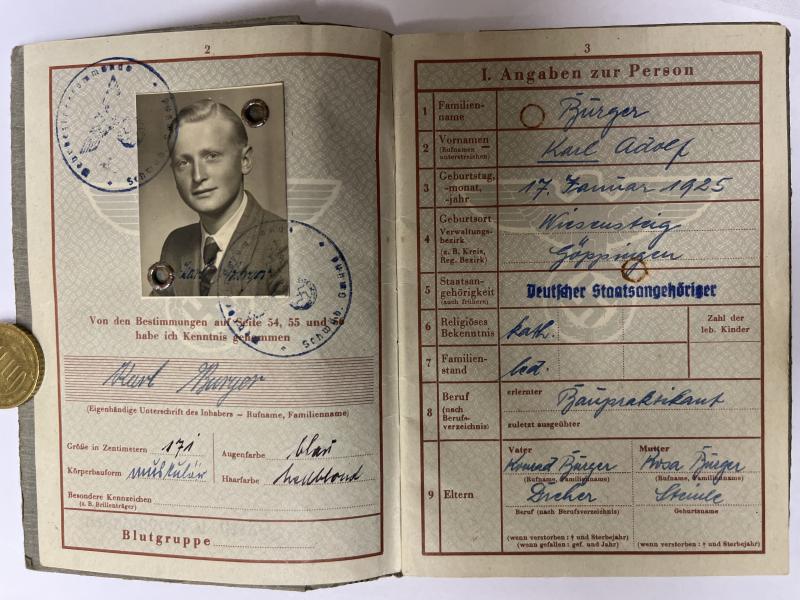 2
Schwäb. Gmünd
Von den Bestimmungen auf Seite 54, 55 und 56
habe ich Kenntnis genommen
Karl Burger
(Eigenhändige Unterschrift des Inhabers – Rufname, Familienname)
Größe in Zentimetern 171 Augenfarbe blau
Körperbauform muskulär Haarfarbe hellblond
Besondere Kennzeichen
(z. B. Brillenträger)
Blutgruppe
3
I. Angaben zur Person
1 Familienname Bürger
2 Vornamen
(Rufnamen unterstreichen) Karl Adolf
3 Geburtstag, -monat, -jahr 17. Januar 1925
4 Geburtsort
Verwaltungsbezirk
(z. B. Kreis, Reg. Bezirk) Wiesensteig
Göppingen
5 Staatsangehörigkeit
(auch frühere) Deutscher Staatsangehöriger
6 Religiöses Bekenntnis kath. Zahl der
leb. Kinder
7 Familienstand led.
8 Beruf
(nach Berufsverzeichnis) erlernter Baupraktikant
zuletzt ausgeübter
9 Eltern
Vater
Konrad Bürger
(Rufname, Familienname)
Beruf (nach Berufsverzeichnis)
(wenn verstorben: † und Sterbejahr)
(wenn gefallen: gef. und Jahr)
Mutter
Rosa Bürger
(Rufname, Familienname)
Geburtsname
(wenn verstorben: † und Sterbejahr)